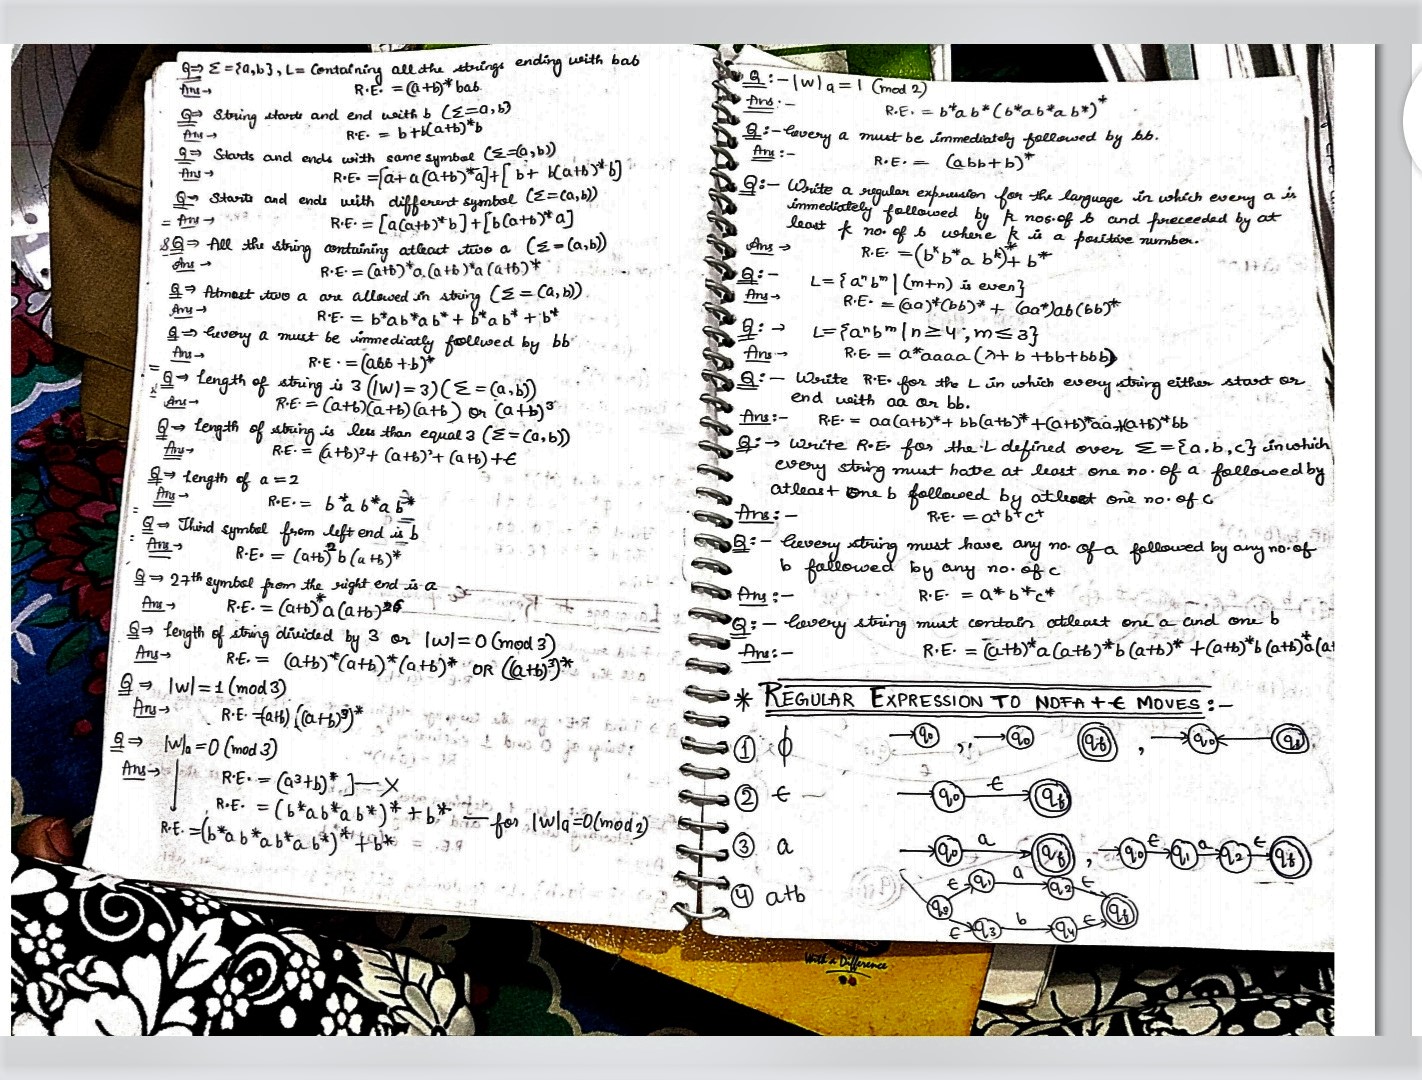 Q⇒ Σ={a,b}, L= Containing all the strings ending with bab
Ans→ R.E. = (a+b)*bab
Q⇒ String starts and end with b (Σ=a,b)
Ans→ R.E. = b+b(a+b)*b
Q⇒ Starts and ends with same symbol (Σ=(a,b))
Ans→ R.E. =[a+a(a+b)*a]+[b+ b(a+b)*b]
Q⇒ Starts and ends with different symbol (Σ=(a,b))
Ans→ R.E. = [a(a+b)*b]+[b(a+b)*a]
Q⇒ All the string containing atleast two a (Σ=(a,b))
Ans→ R.E. = (a+b)*a(a+b)*a(a+b)*
Q⇒ Atmost two a are allowed in string (Σ=(a,b))
Ans→ R.E. = b*ab*ab* + b*ab* + b*
Q⇒ Every a must be immediatly follwed by bb
Ans→ R.E. = (abb+b)*
Q⇒ Length of string is 3 (|W|=3) (Σ=(a,b))
Ans→ R.E. = (a+b)(a+b)(a+b) or (a+b)³
Q⇒ Length of string is less than equal 3 (Σ=(a,b))
Ans→ R.E. = (a+b)³+(a+b)²+(a+b)+ϵ
Q⇒ Length of a=2
Ans→ R.E. = b*ab*ab*
Q⇒ Third symbol from left end is b
Ans→ R.E. = (a+b)²b(a+b)*
Q⇒ 27th symbol from the right end is a
Ans→ R.E. = (a+b)*a(a+b)²⁶
Q⇒ Length of string divided by 3 or |w|=0(mod3)
Ans→ R.E. = (a+b)*(a+b)*(a+b)* OR ((a+b)³)*
Q⇒ |w|=1(mod3)
Ans→ R.E.=(a+b)((a+b)³)*
Q⇒ |w|a=0(mod3)
Ans→ R.E. = (a³+b)* ]—X
R.E. = (b*ab*ab*)* + b* — for |w|a=0(mod2)
R.E.=(b*ab*ab*ab*)*+b*
Q:- |W|a=1 (mod 2)
Ans:- R.E. = b*ab*(b*ab*ab*)*
Q:- Every a must be immediately followed by bb.
Ans:- R.E. = (abb+b)*
Q:- Write a regular expression for the language in which every a is
immediately followed by k nos. of b and preceeded by at
least k no. of b where k is a positive number.
Ans→ R.E. = (bᵏb*a bᵏ)*+ b*
Q:- L={aⁿbᵐ|(m+n) is even}
Ans→ R.E. = (aa)*(bb)* + (aa*)ab(bb)*
Q:→ L={aⁿbᵐ|n≥4, m≤3}
Ans→ R.E. = a*aaaa(λ+b+bb+bbb)
Q:- Write R.E. for the L in which every string either start or
end with aa or bb.
Ans:- R.E. = aa(a+b)*+bb(a+b)*+(a+b)*aa+(a+b)*bb
Q:→ Write R.E. for the L defined over Σ={a,b,c} in which
every string must have at least one no. of a followed by
atleast one b followed by atleast one no. of c
Ans:- R.E. = a⁺b⁺c⁺
Q:- Every string must have any no. of a followed by any no. of
b followed by any no. of c
Ans:- R.E. = a*b*c*
Q:- Every string must contain atleast one a and one b
Ans:- R.E. = (a+b)*a(a+b)*b(a+b)*+(a+b)*b(a+b)*a(a+
* REGULAR EXPRESSION TO NDFA + ϵ MOVES :-
① ϕ q₀ , q₀ qf , q₀ qf
② ϵ q₀ ϵ qf
③ a q₀ a qf , q₀ ϵ q₁ a q₂ ϵ qf
④ a+b q₀ ϵ q₁ a q₂ ϵ qf
ϵ q₃ b q₄ ϵ
With a Difference